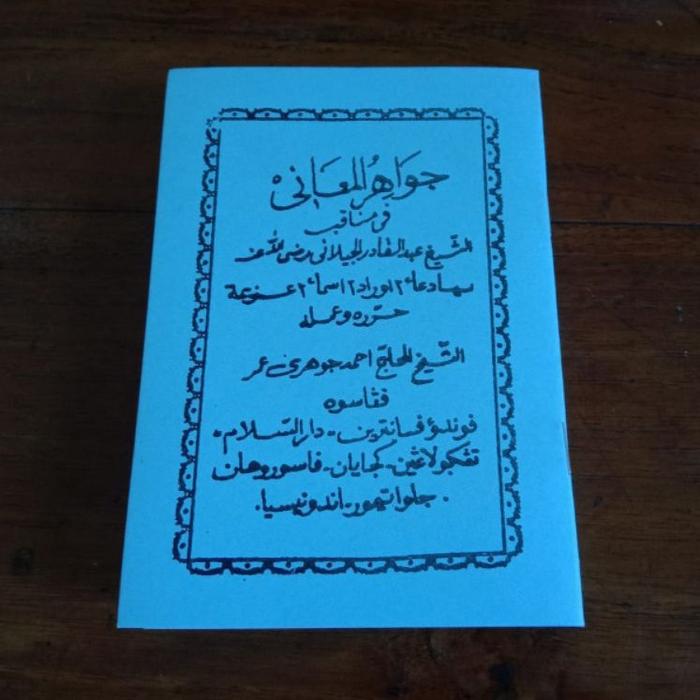 جواهر المعانى
فى مناقب
الشّيخ عبد القادر الجيلانى رضى الله عنه
سهادعاء٢ اوراد٢ اسماء٢ عزيمة
حرّره وعمله
الشّيخ الحاج احمد جوهرى عمر
فڠاسوه
فوندؤ فسانترين - دار السّلام -
تڠكولاڠين - كجايان - فاسوروهان
. جاوا تيمور - اندونيسيا .